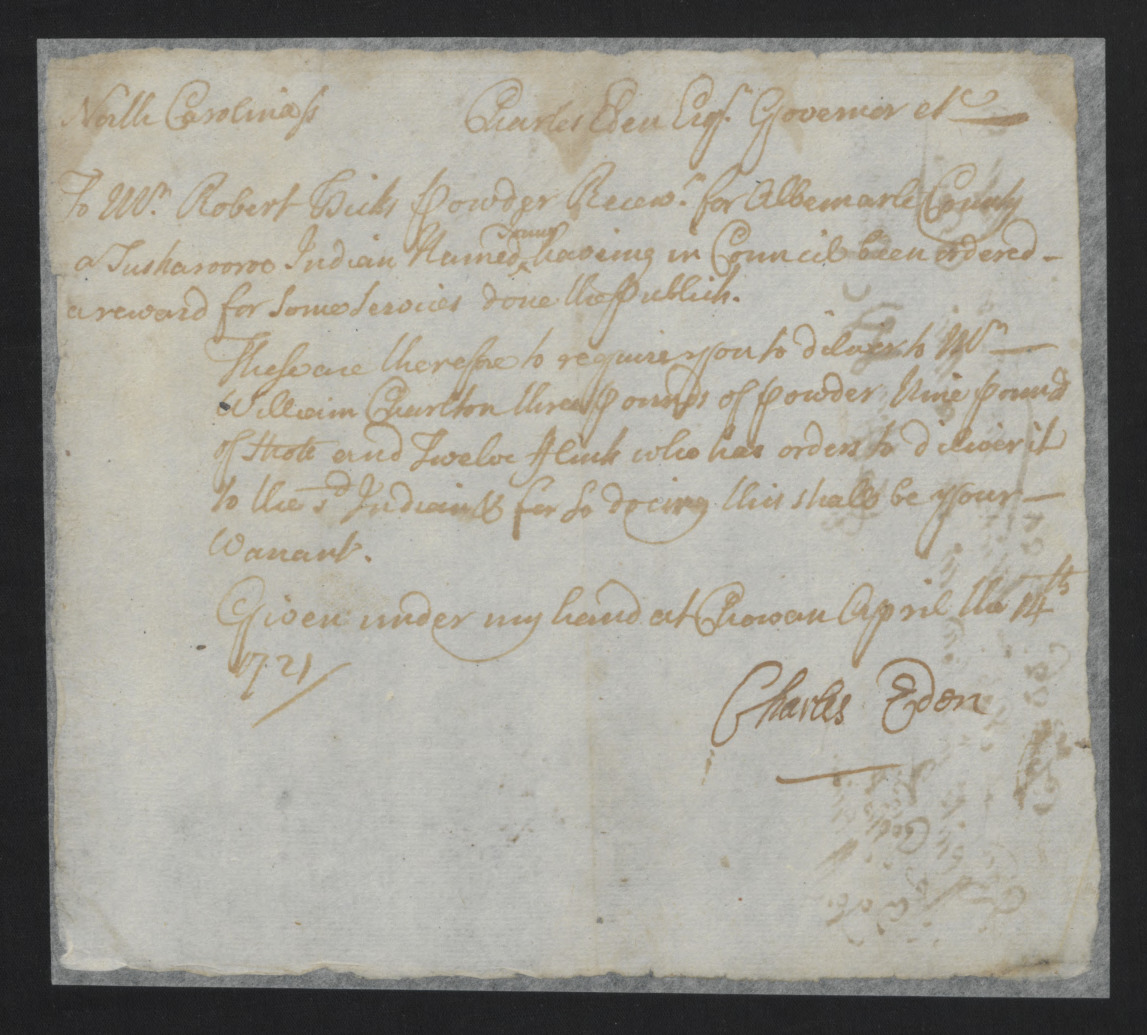 North Carolina ss
Charles Eden Esqr. Governor etc
To Mr. Robert Hicks Powder Receivr. for Albemarle County
a Tuskarooroe Indian Named having in Council been ordered
a reward for some services done the Publick.
These are therefore to require you to diliver to Mr
William Charlton three pounds of powder Nine pounds
of Shote and Twelve flints who has orders to diliver it
to the sd Indian & for so doeing this shall be your
Warrant.
Given under my hand at Chowan April the 14th
1721
Charles Eden